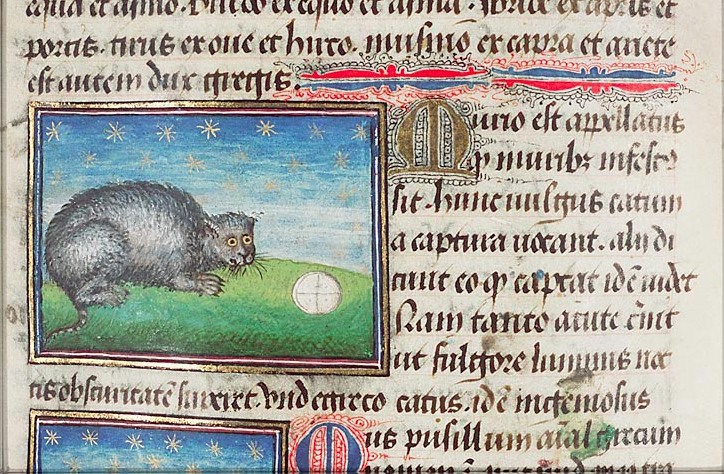 equa et asino. Burdo ex equo et asina. Ybrix ex apris et
porcis. tirus ex oue et hirco. musmo ex capra et ariete
est autem dux gregis.
Murio est appellatus
q̓ muribꝫ infesto
sit. hunc uulgus catum
a captura uocant. alij di
cunt eo q̓ captat idē uidet
Nam tanto acute c̄nit
ut fulgore luminis noc
tis obscuritatē superet. vnde greco catus. idē ingeniosus
Mus pusillum aīal grecum